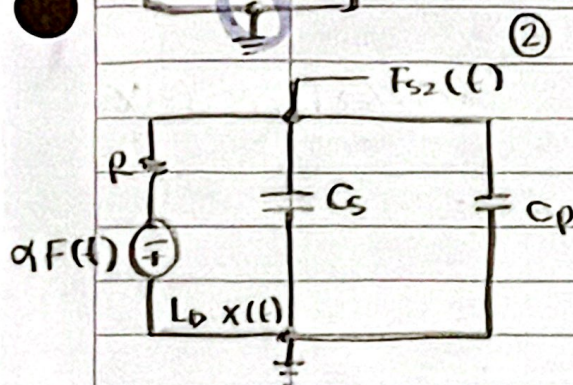 ②
Fs2(t)
R
Cs
Cp
αF(t)
L₀ x(t)